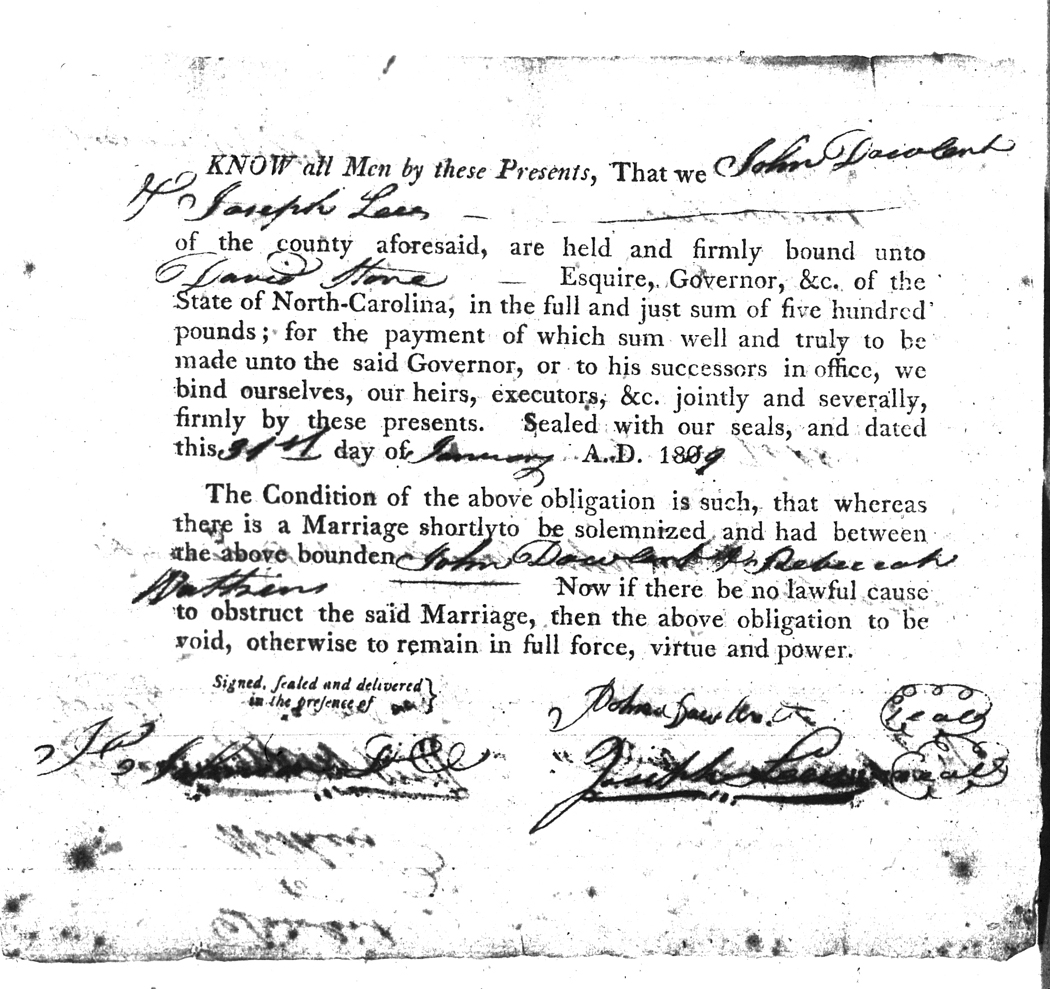 KNOW all Men by these Presents, That we John Dawlent
& Joseph Lees
of the county aforesaid, are held and firmly bound unto
David Stone — Esquire, Governor, &c. of the
State of North-Carolina, in the full and just sum of five hundred
pounds; for the payment of which sum well and truly to be
made unto the said Governor, or to his successors in office, we
bind ourselves, our heirs, executors, &c. jointly and severally,
firmly by these presents. Sealed with our seals, and dated
this 31st day of January A.D. 1809
The Condition of the above obligation is such, that whereas
there is a Marriage shortlyto be solemnized and had between
the above bounden John Dawlent & Rebeccah
Watkins Now if there be no lawful cause
to obstruct the said Marriage, then the above obligation to be
void, otherwise to remain in full force, virtue and power.
Signed, sealed and delivered
in the presence of
John (seal)
Joseph Lees (seal)